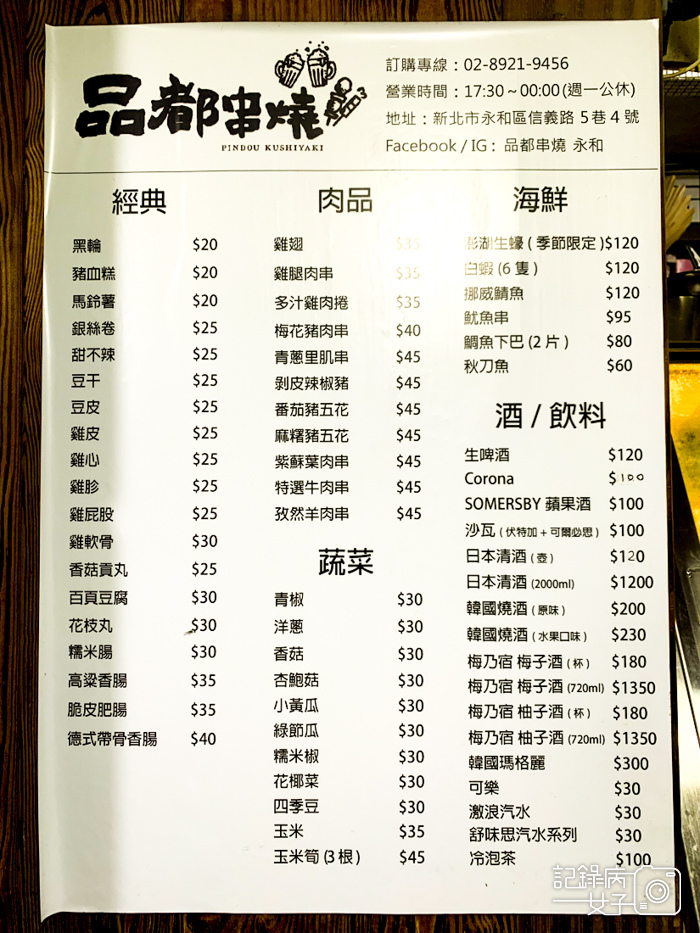 品都串燒
PINDOU KUSHIYAKI
訂購專線：02-8921-9456
營業時間：17:30～00:00(週一公休)
地址：新北市永和區信義路5巷4號
Facebook / IG：品都串燒 永和
經典
黑輪 $20
豬血糕 $20
馬鈴薯 $20
銀絲卷 $25
甜不辣 $25
豆干 $25
豆皮 $25
雞皮 $25
雞心 $25
雞胗 $25
雞屁股 $25
雞軟骨 $30
香菇貢丸 $25
百頁豆腐 $30
花枝丸 $30
糯米腸 $30
高粱香腸 $35
脆皮肥腸 $35
德式帶骨香腸 $40
肉品
雞翅 $35
雞腿肉串 $35
多汁雞肉捲 $35
梅花豬肉串 $40
青蔥里肌串 $45
剝皮辣椒豬 $45
番茄豬五花 $45
麻糬豬五花 $45
紫蘇葉肉串 $45
特選牛肉串 $45
孜然羊肉串 $45
蔬菜
青椒 $30
洋蔥 $30
香菇 $30
杏鮑菇 $30
小黃瓜 $30
綠節瓜 $30
糯米椒 $30
花椰菜 $30
四季豆 $30
玉米 $35
玉米筍 (3根) $45
海鮮
澎湖生蠔 (季節限定) $120
白蝦 (6隻) $120
挪威鯖魚 $120
魷魚串 $95
鯛魚下巴 (2片) $80
秋刀魚 $60
酒 / 飲料
生啤酒 $120
Corona $100
SOMERSBY 蘋果酒 $100
沙瓦 (伏特加+可爾必思) $100
日本清酒 (壺) $120
日本清酒 (2000ml) $1200
韓國燒酒 (原味) $200
韓國燒酒 (水果口味) $230
梅乃宿 梅子酒 (杯) $180
梅乃宿 梅子酒 (720ml) $1350
梅乃宿 柚子酒 (杯) $180
梅乃宿 柚子酒 (720ml) $1350
韓國瑪格麗 $300
可樂 $30
激浪汽水 $30
舒味思汽水系列 $30
冷泡茶 $100
記錄病
女子